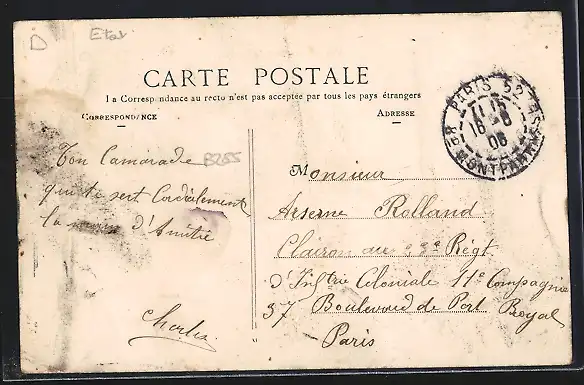 D
Etat
CARTE POSTALE
La Correspondance au recto n'est pas acceptée par tous les pays étrangers
CORRESPONDANCE
ADRESSE
PARIS 22
11 15
18 - 8
06
R. MONTPARNASSE 68
Ton Camarade
B255
qui te sert Cordialement
la main d'Amitié
Charles
Monsieur
Arsenne Rolland
Clairon au Régt
d'Inftrie Coloniale 11e Compagnie
37 Boulevard de Port Royal
Paris